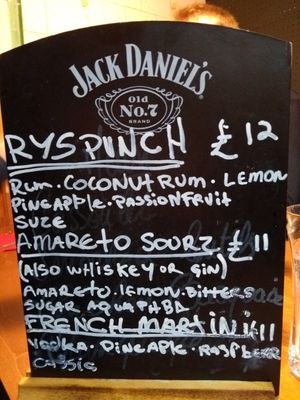 JACK DANIEL'S
Old
No. 7
BRAND
RYS PUNCH £12
RUM. COCONUT RUM. LEMON
PINEAPPLE. PASSIONFRUIT
SUZE
AMARETO SOURZ £11
(ALSO WHISKEY OR GIN)
AMARETO. LEMON. BITTERS
SUGAR AQUA
FRENCH MARTINI £11
VODKA. PINEAPLE. RASPBERR
CASSIE